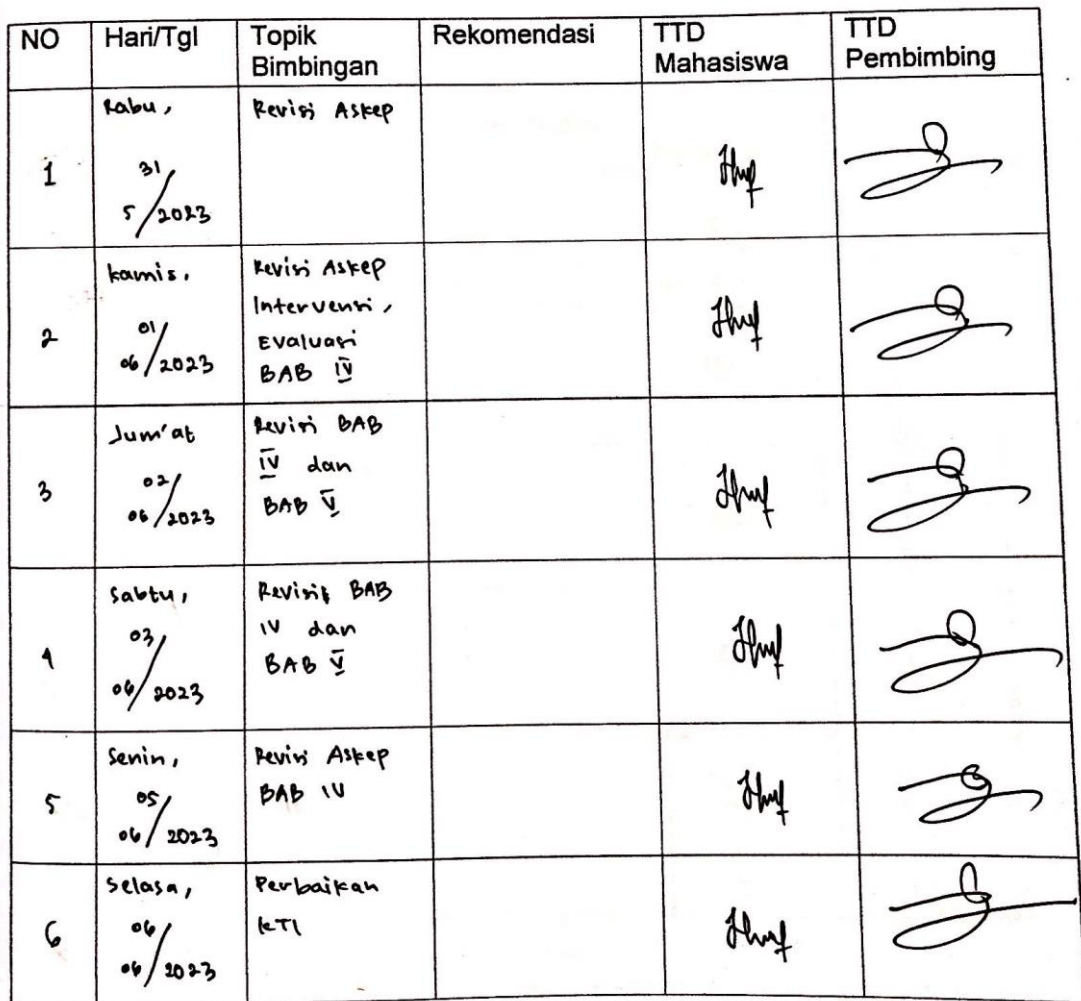 NO Hari/Tgl Topik Bimbingan Rekomendasi TTD Mahasiswa TTD Pembimbing
1 Rabu, 31/5/2023 Revisi Askep
2 Kamis, 01/06/2023 Revisi Askep Intervensi, Evaluasi BAB IV
3 Jum'at 02/06/2023 Revisi BAB IV dan BAB V
4 Sabtu, 03/06/2023 Revisi BAB IV dan BAB V
5 Senin, 05/06/2023 Revisi Askep BAB IV
6 Selasa, 06/06/2023 Perbaikan KTI